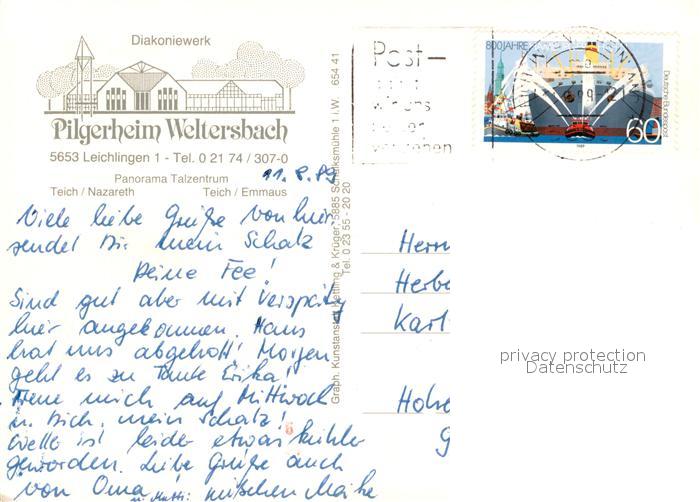 Diakoniewerk
Pilgerheim Weltersbach
5653 Leichlingen 1 - Tel. 0 21 74 / 307-0
Panorama Talzentrum
Teich / Nazareth Teich / Emmaus
11.8.89
Viele liebe Grüße von hier
sendet Dir mein Schatz
Deine Fee!
Sind gut aber mit Verspätg
hier angekommen. Hans
hat uns abgeholt! Morgen
geht es zu Tante Erika!
Freue mich auf Mittwoch
u. Dich, mein Schatz!
Welle ist leider etwas kühler
geworden. Liebe Grüße auch
von Oma u. Mutti:
Graph. Kunstanstalt Kettling & Krüger, 5885 Schalksmühle 1 i.W. 654 41
Tel. 0 23 55 - 20 20
Post-
800 JAHRE
Deutsche Bundespost
60
1989
Herrn
Herbe
Karl
Holz
privacy protection
Datenschutz